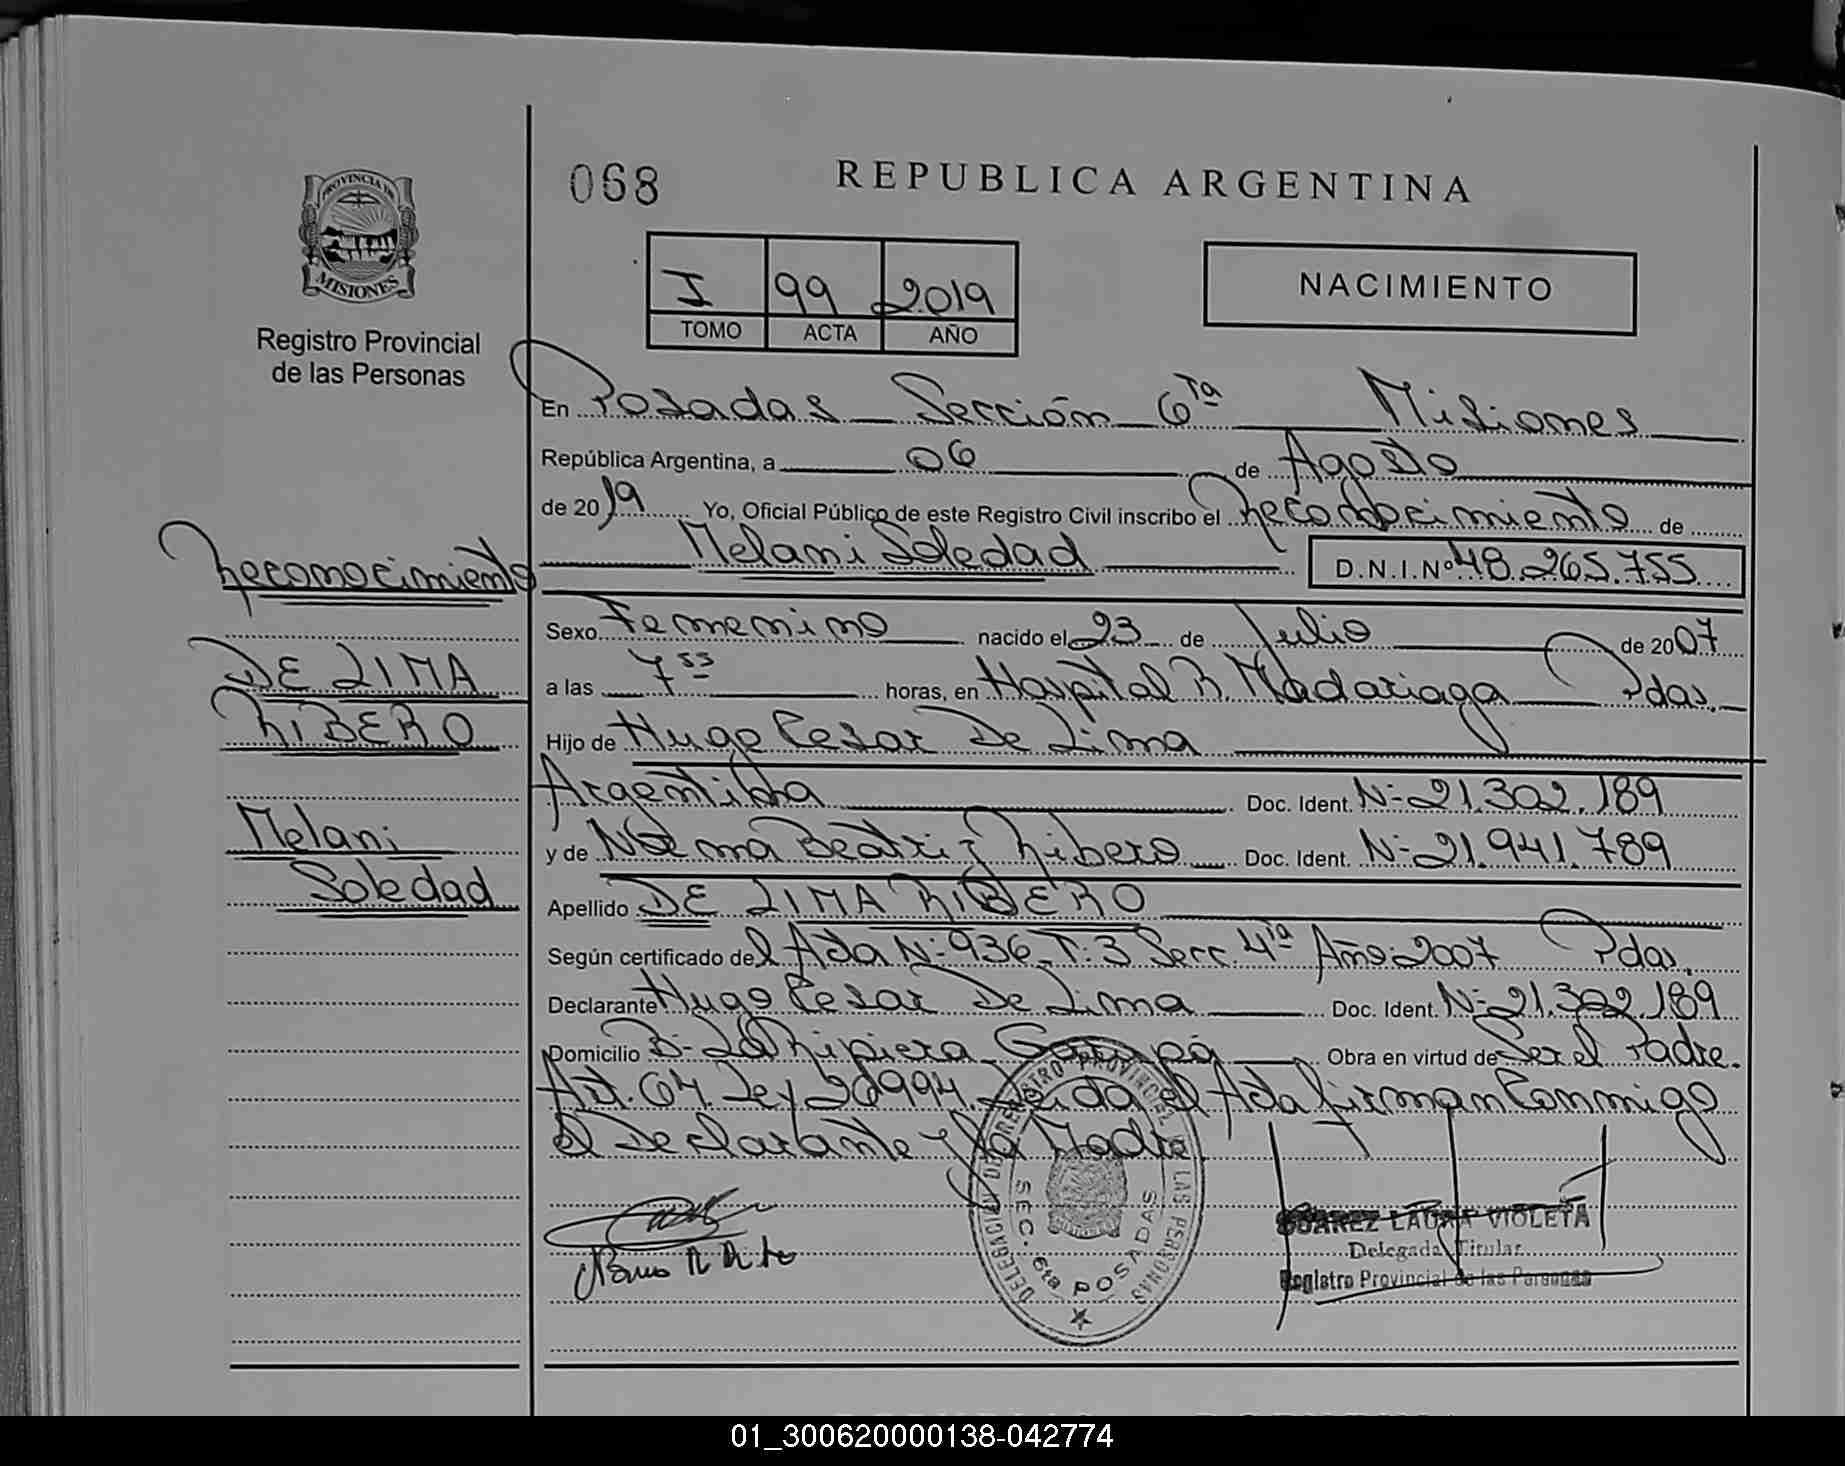 068
REPUBLICA ARGENTINA
PROVINCIA DE
MISIONES
Registro Provincial
de las Personas
I 99 2019
TOMO ACTA AÑO
NACIMIENTO
En Posadas Sección 6ta Misiones
República Argentina, a 06 de Agosto
de 2019 Yo, Oficial Público de este Registro Civil inscribo el Reconocimiento de
Melani Soledad D.N.I.Nº 48.265.755
Reconocimiento
DE LIMA
RIBERO
Melani
Soledad
Sexo Femenino nacido el 23 de Julio de 2007
a las 7 55 horas, en Hospital R. Madariaga Pdas.
Hijo de Hugo Cesar De Lima
Argentina Doc. Ident. Nº 21.302.189
y de Norma Beatriz Ribero Doc. Ident. Nº 21.941.789
Apellido DE LIMA RIBERO
Según certificado del Acta Nº 936 T: 3 Secc. 4ta Año: 2007 Pdas.
Declarante Hugo Cesar De Lima Doc. Ident. Nº 21.302.189
Domicilio Bº La Ripiera Garupá Obra en virtud de Ser el Padre.
Art. 64 Ley 26994. Leida el Acta firman Conmigo
el Declarante y la Madre.
DELEGACION DEL REGISTRO PROVINCIAL DE LAS PERSONAS
SEC. 6ta POSADAS
SUAREZ LAURA VIOLETA
Delegada Titular
Registro Provincial de las Personas
01_300620000138-042774